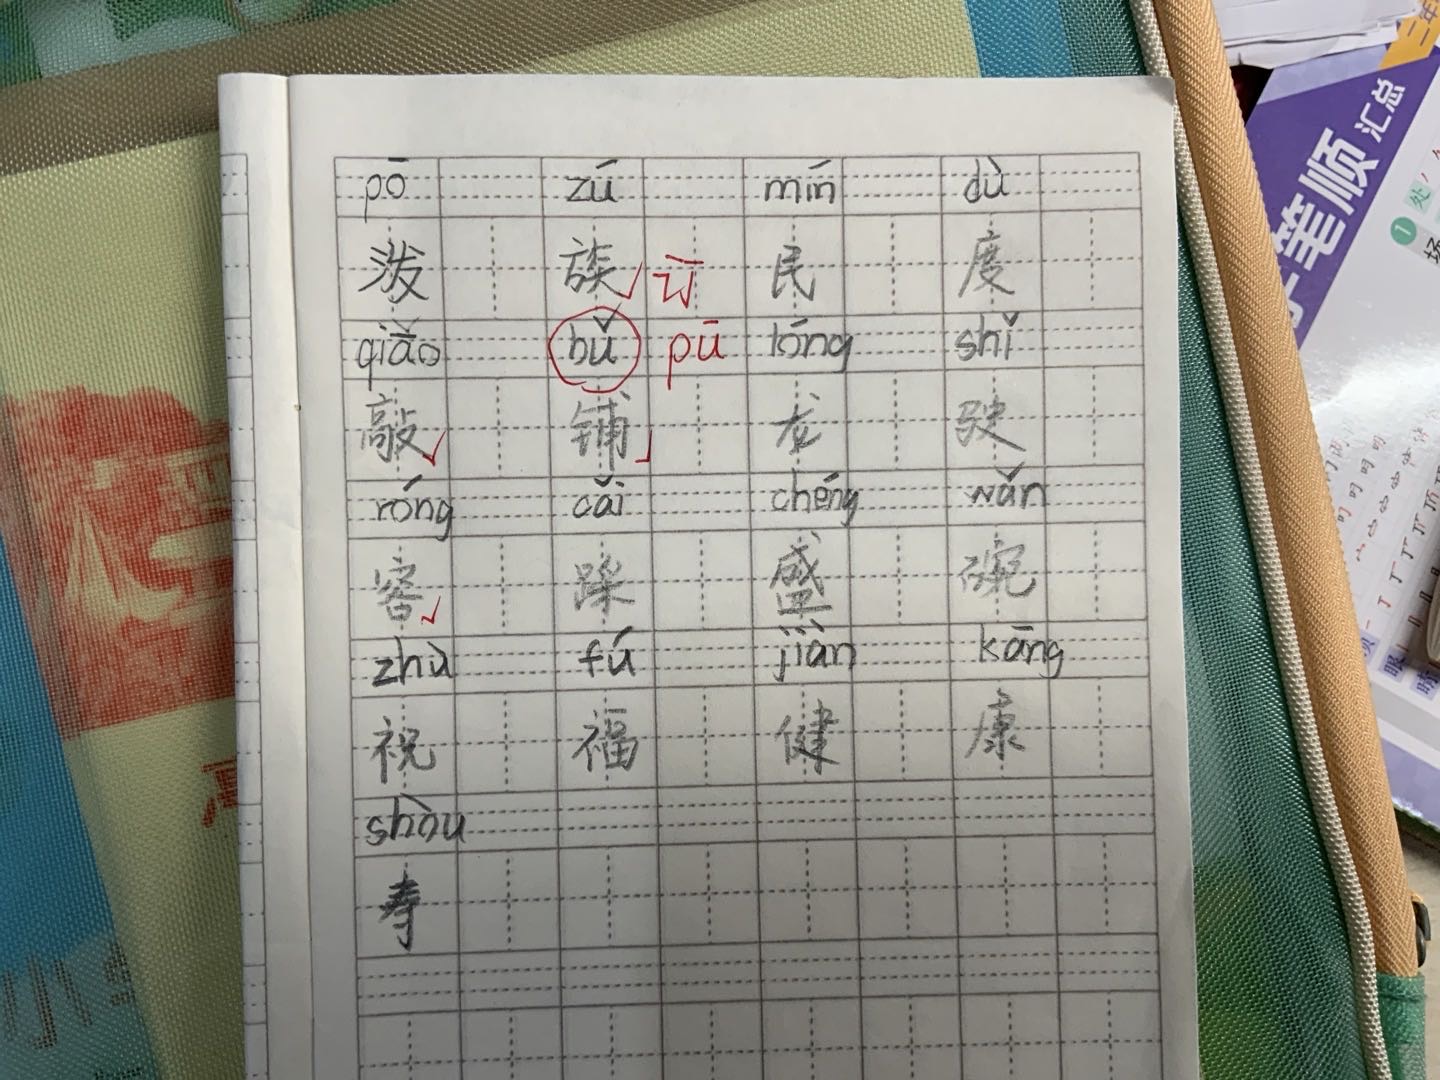 pō zú mín dù
泼 族 订 民 度
qiāo bǔ pū lóng shǐ
敲 铺 龙 驶
róng cǎi chéng wǎn
容 踩 盛 碗
zhù fú jiàn kāng
祝 福 健 康
shòu
寿
笔顺 汇总